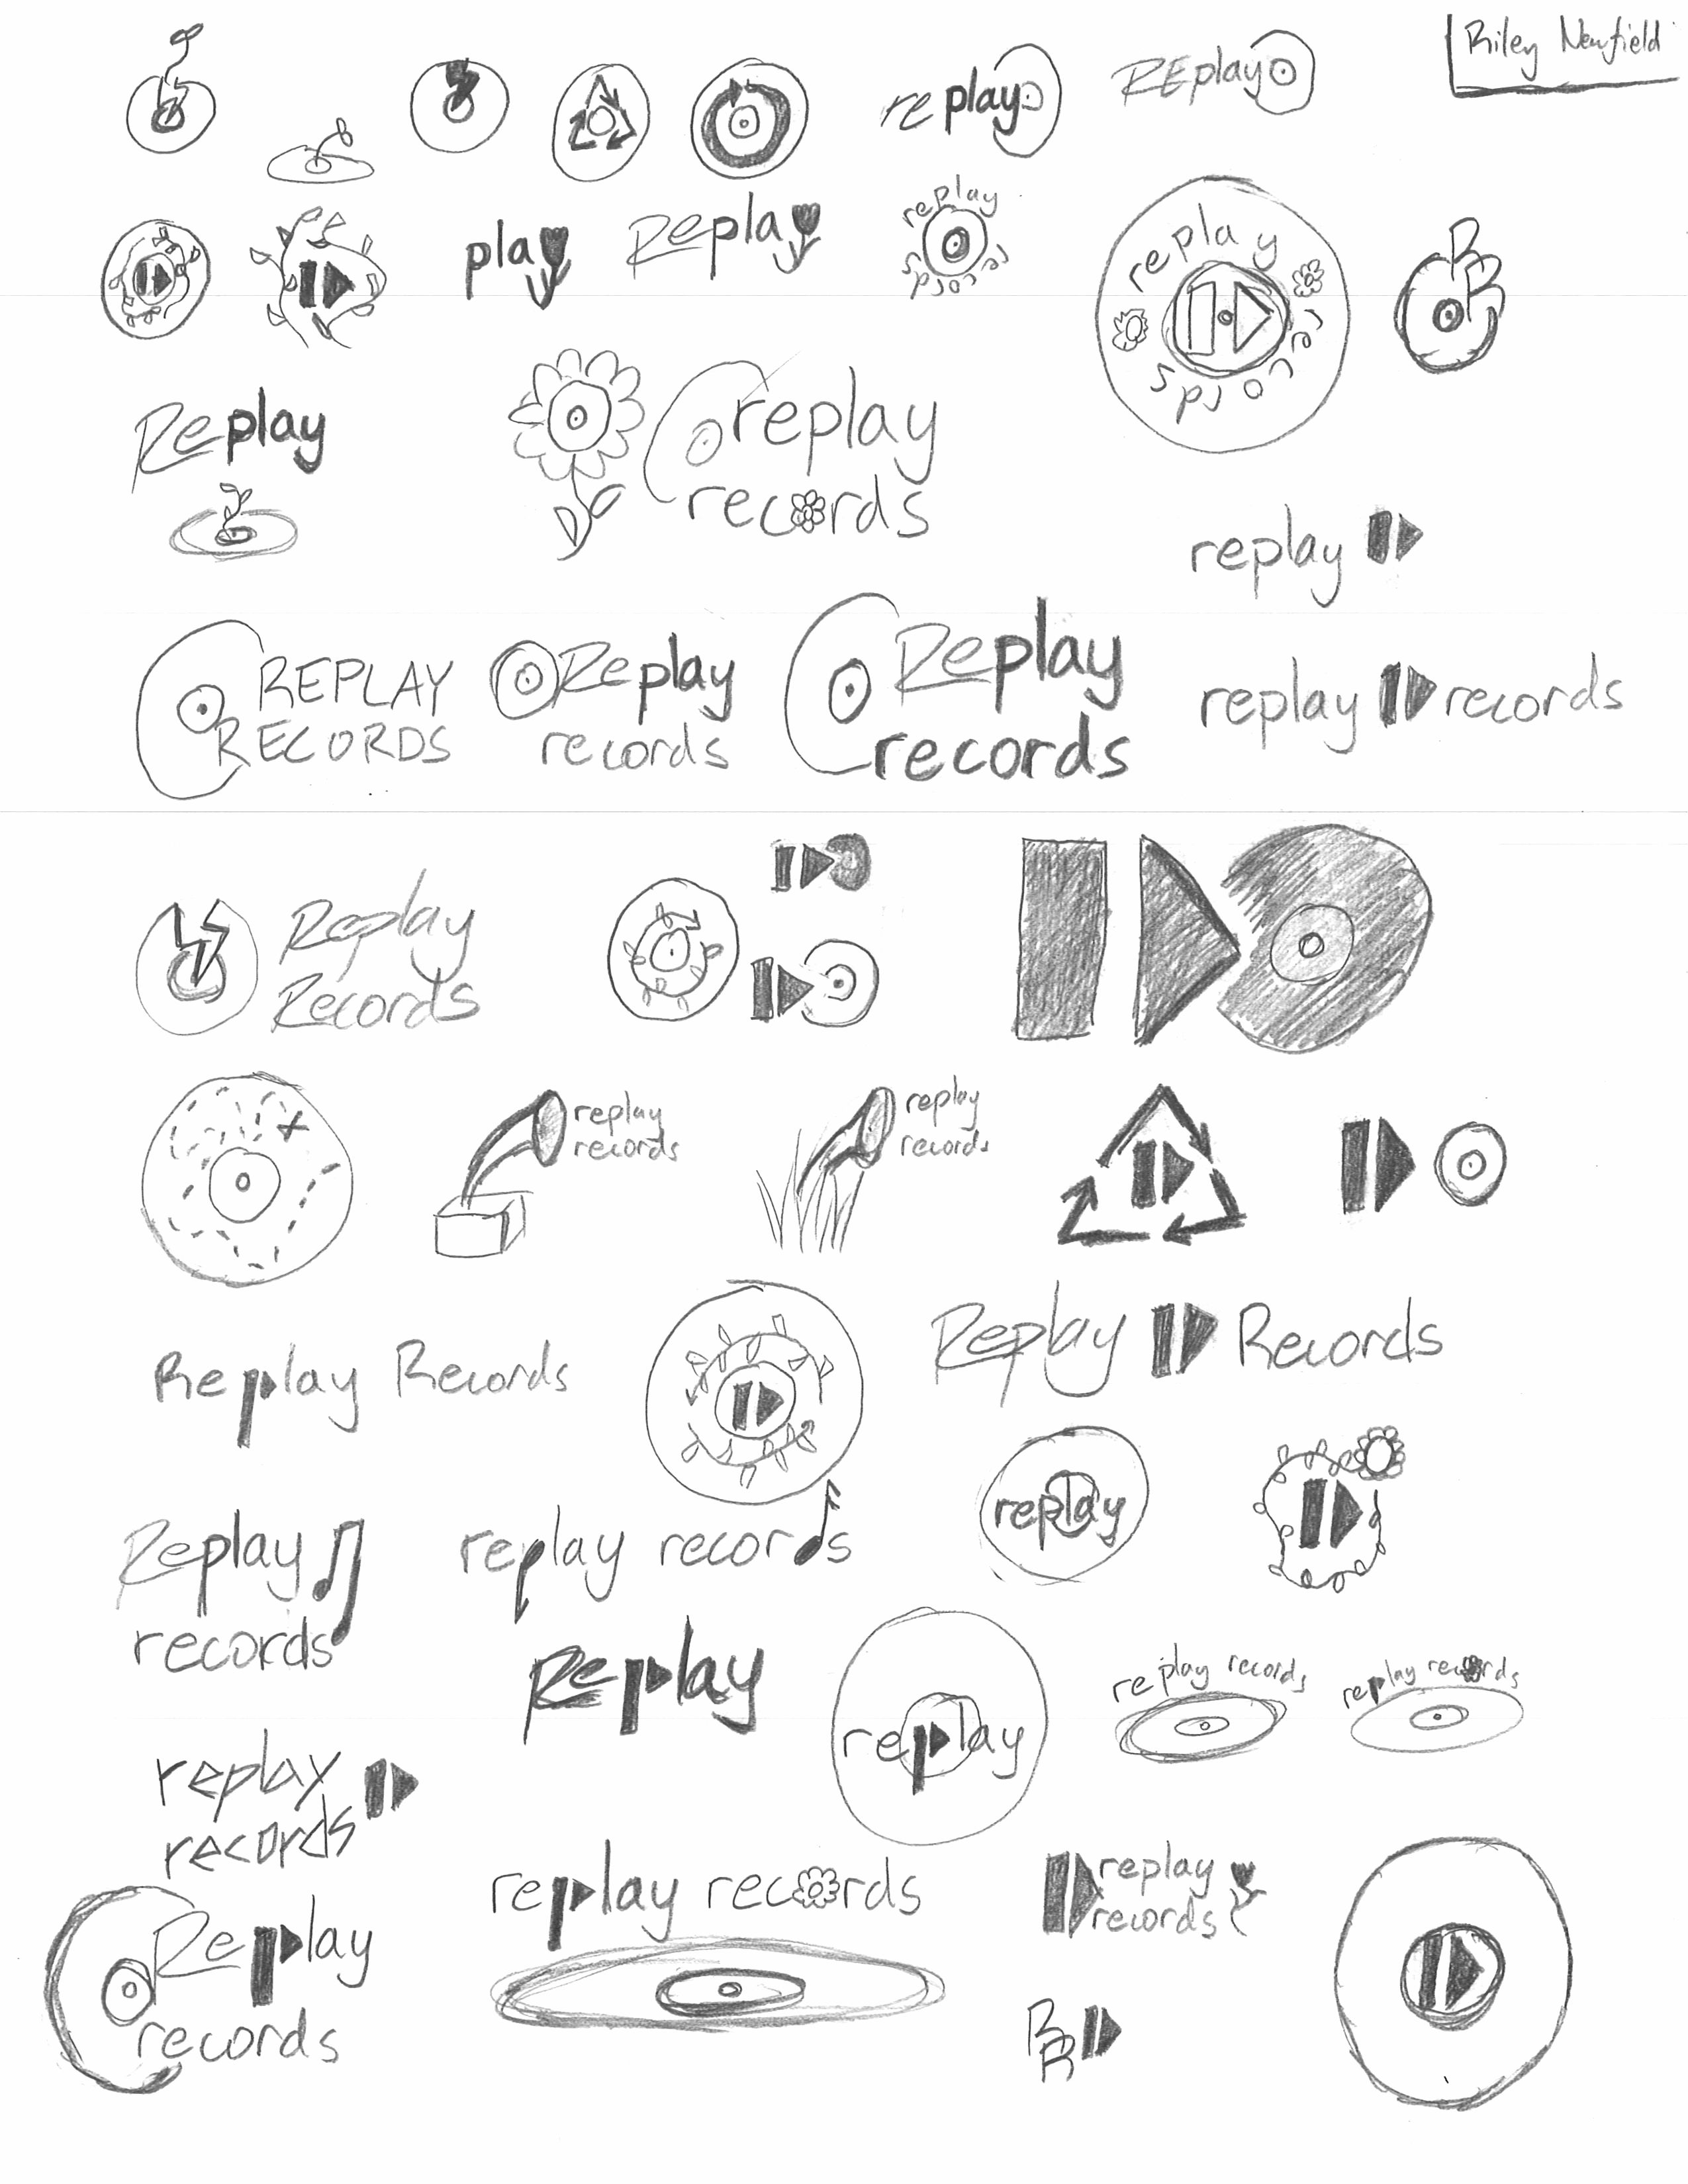 Riley Newfield
replay
REplay
replay
records
play
Replay
replay
records
R
R
Replay
replay
records
replay
REPLAY
RECORDS
Replay
records
Replay
records
replay records
Replay
Records
replay
records
replay
records
Replay Records
Replay Records
replay
Replay
records
replay records
Replay
replay
replay records
replay records
replay
records
Replay
records
replay records
replay
records
R
R